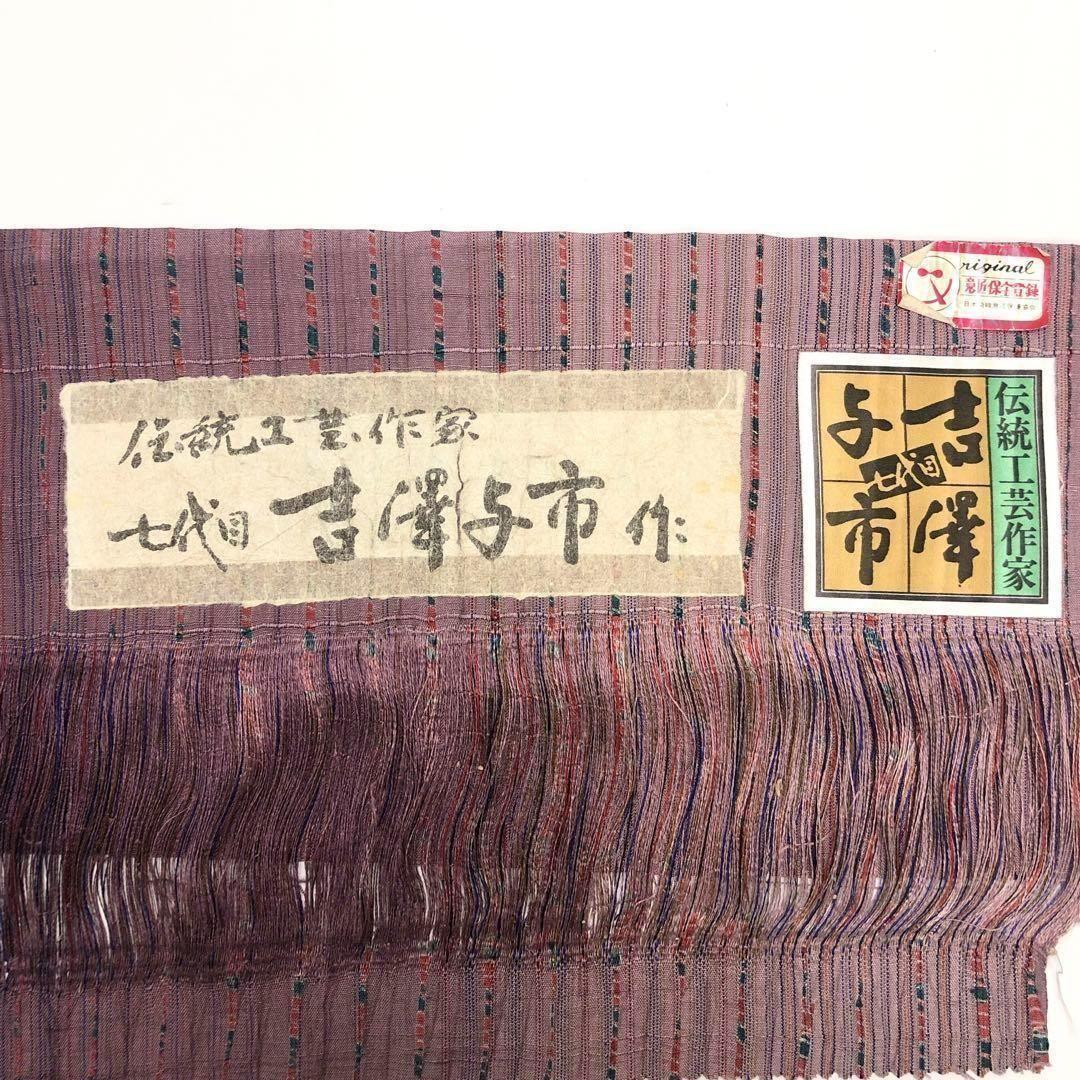 伝統工芸作家
七代目 吉澤与市 作
Original
意匠保全登録
伝統工芸作家
吉澤
七代目
与市